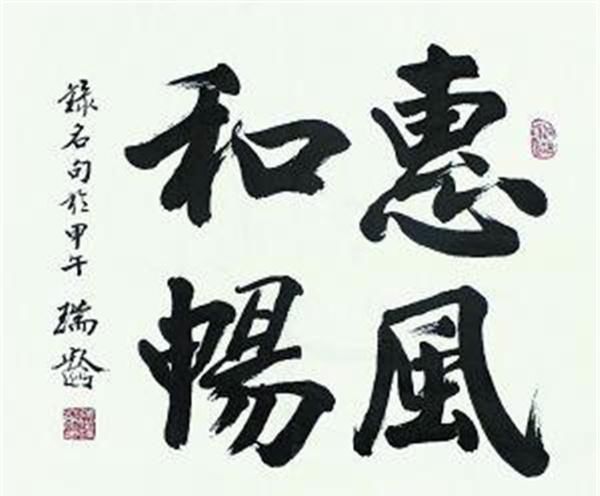 惠風
和暢
錄名句於甲午 瑞齡